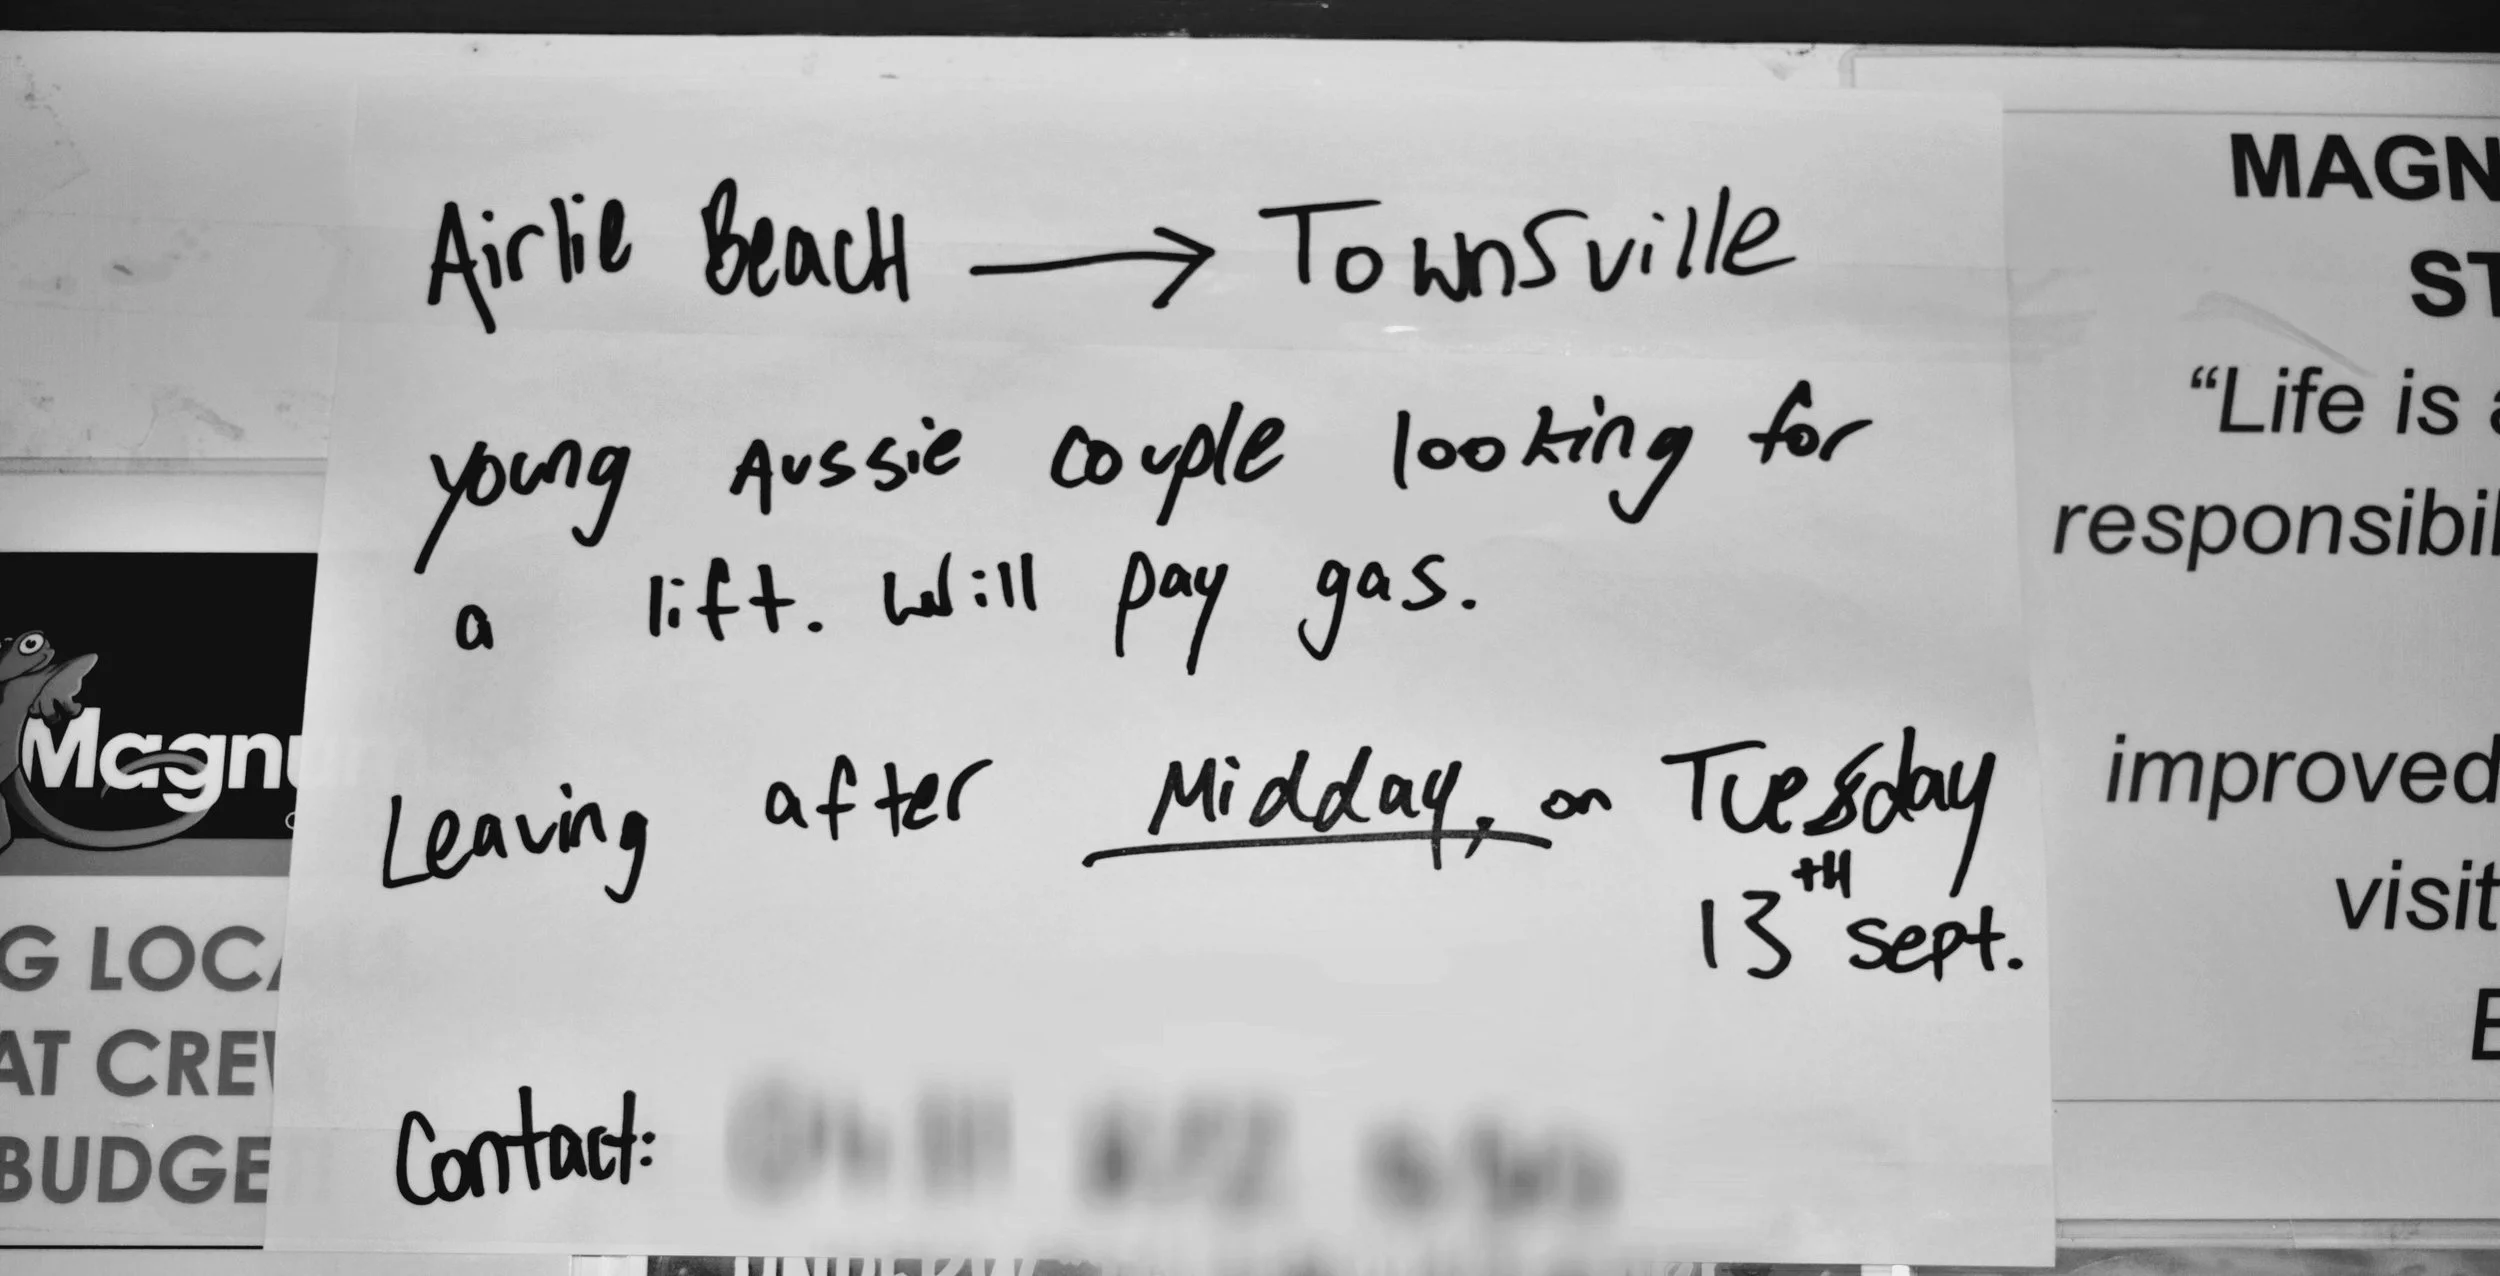 Airlie Beach → Townsville
young Aussie couple looking for
a lift. Will pay gas.
Leaving after Midday, on Tuesday
13th sept.
Contact:
Magnu
G LOCA
AT CREW
BUDGE
MAGN
ST
“Life is a
responsibil
improved
visit
E
UNDERW